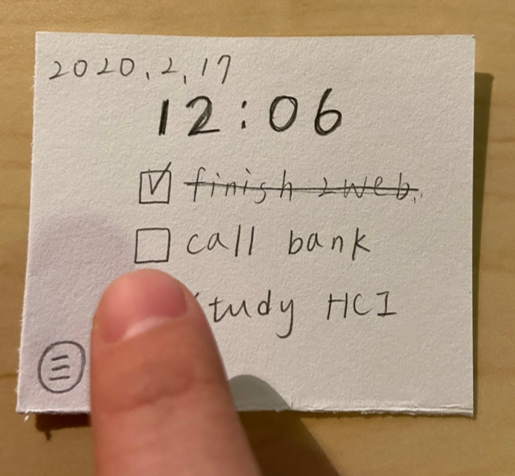 2020.2.17
12:06
finish 2web.
call bank
study HCI